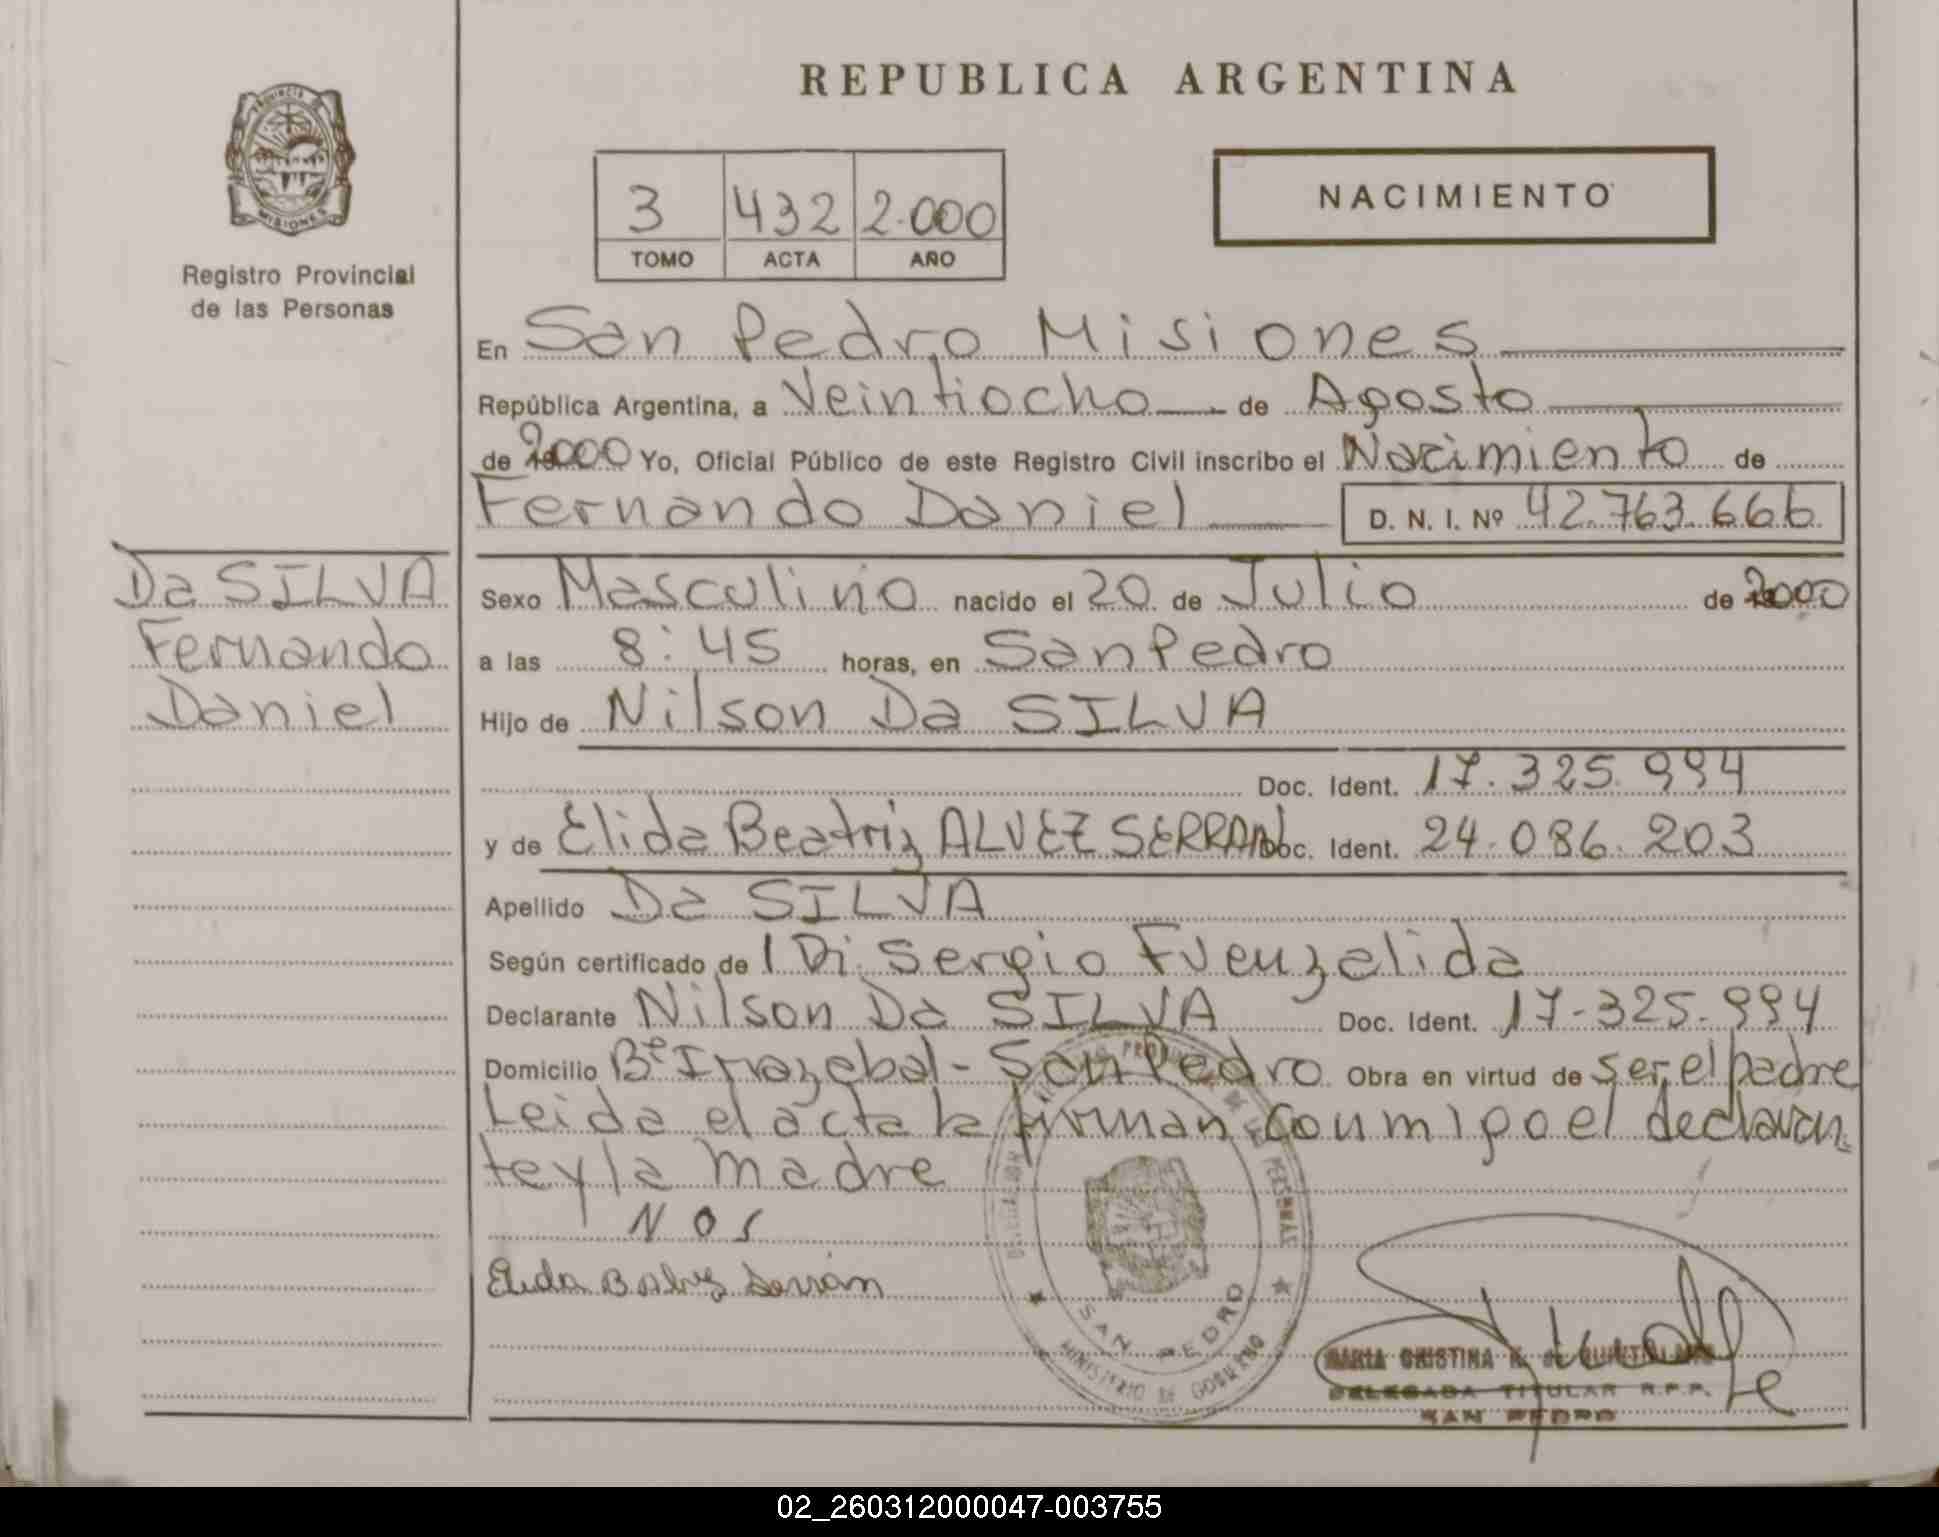 REPUBLICA ARGENTINA
PROVINCIA DE
MISIONES
Registro Provincial
de las Personas
3 432 2.000
TOMO ACTA AÑO
NACIMIENTO
En San Pedro Misiones
República Argentina, a Veintiocho de Agosto
de 2000 Yo, Oficial Público de este Registro Civil inscribo el Nacimiento de
Fernando Daniel D. N. I. Nº 42.763.666
Da SILVA
Fernando
Daniel
Sexo Masculino nacido el 20 de Julio de 2000
a las 8:45 horas, en San Pedro
Hijo de Nilson Da SILVA
Doc. Ident. 17.325.994
y de Elida Beatriz ALVEZ SERRAN Doc. Ident. 24.086.203
Apellido Da SILVA
Según certificado de Sergio Fuenzalida
Declarante Nilson Da SILVA Doc. Ident. 17-325.994
Domicilio Bº Irrazabal - San Pedro Obra en virtud de ser el padre
Leida el acta la firman conmigo el declaran
te y la madre
Elida
REGISTRO PROVINCIAL DE LAS PERSONAS
SAN PEDRO
MINISTERIO DE GOBIERNO
MARIA CRISTINA
DELEGADA TITULAR R.P.P.
SAN PEDRO
02_260312000047-003755